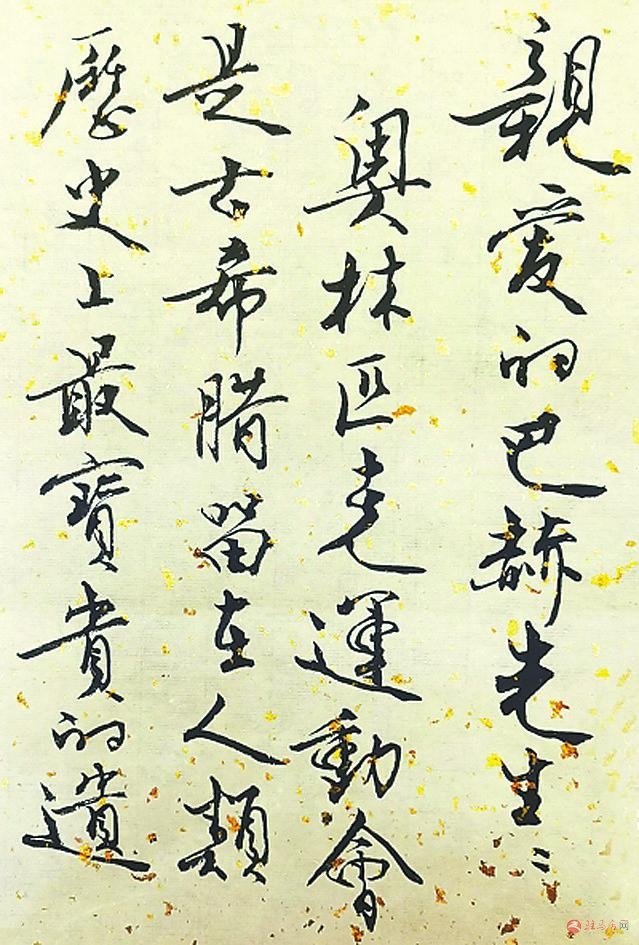 親愛的巴赫先生:
奥林匹克運動會
是古希腊留在人類
歷史上最寶貴的遺
驻马店网